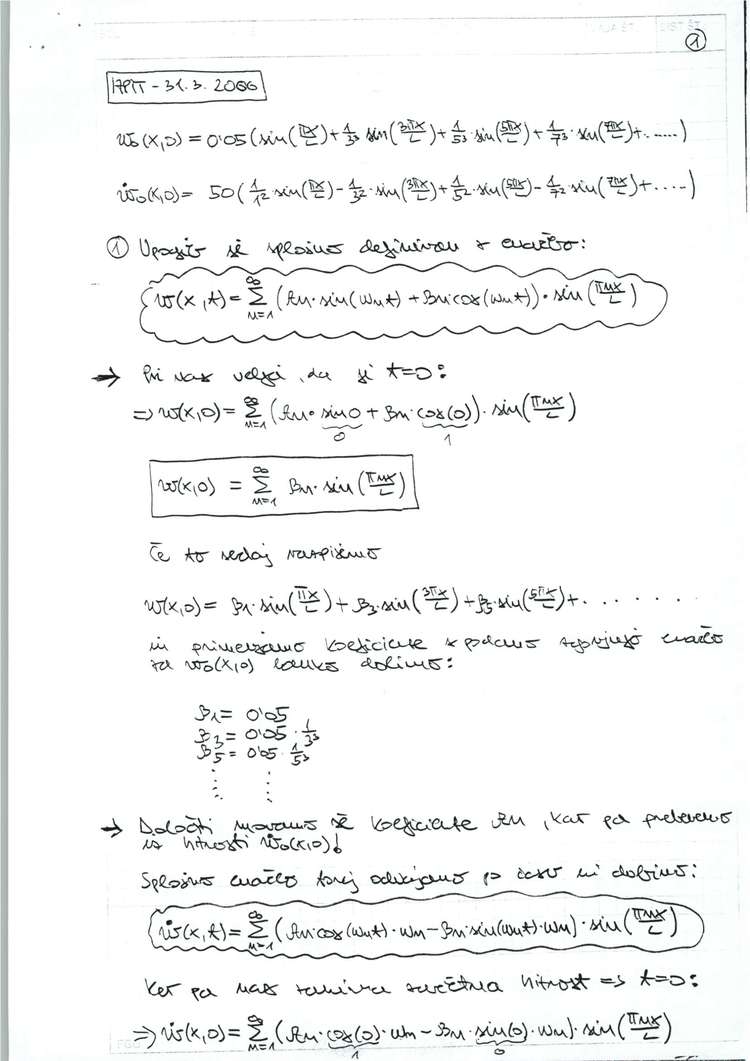 ①
APIT - 31.3.2006
w₀(x,0) = 0'05 (sin(πx/L) + 1/3³ sin(3πx/L) + 1/5³ · sin(5πx/L) + 1/7³ · sin(7πx/L) + ......)
ẇ₀(x,0) = 50 (1/1² sin(πx/L) - 1/3² · sin(3πx/L) + 1/5² · sin(5πx/L) - 1/7² · sin(7πx/L) + ....)
① je splošno definiran z enačbo:
w(x,t) = ∑ₙ₌₁^∞ (An · sin(ωnt) + Bn · cos(ωnt)) · sin(πnx/L)
→ Pri nas velja, da je t=0:
⇒ w(x,0) = ∑ₙ₌₁^∞ (An · sin 0 + Bn · cos(0)) · sin(πnx/L)
0 1
w(x,0) = ∑ₙ₌₁^∞ Bn · sin(πnx/L)
Če to sedaj razpišemo
w(x,0) = B₁ · sin(πx/L) + B₃ · sin(3πx/L) + B₅ · sin(5πx/L) + . . . . . . .
in primerjamo koeficiente z podano zgornjo enačbo
za w₀(x,0) lahko dobimo:
B₁ = 0'05
B₃ = 0'05 · 1/3³
B₅ = 0'05 · 1/5³
→ Določiti moramo še koeficiente An, kar pa
iz hitrosti ẇ₀(x,0)!
Splošno enačbo torej odvajamo po času in dobimo:
ẇ(x,t) = ∑ₙ₌₁^∞ (An · cos(ωnt) · ωn - Bn · sin(ωnt) · ωn) · sin(πnx/L)
Ker pa nas zanima začetna hitrost ⇒ t=0:
⇒ ẇ(x,0) = ∑ₙ₌₁^∞ (An · cos(0) · ωn - Bn · sin(0) · ωn) · sin(πnx/L)
1 0